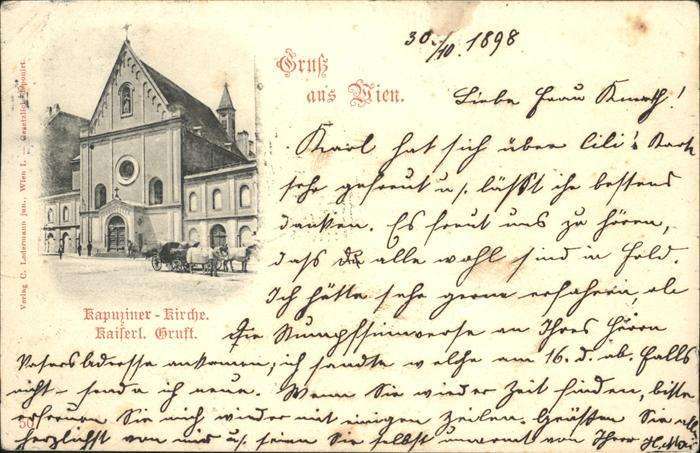 30./10. 1898
Gruß
aus Wien.
Liebe Frau Knath!
Karl hat sich über Lili's Karte
sehr gefreut u. läßt ihr bestens
danken. Es freut uns zu hören,
daß alle wohl sind in Feld.
Ich hätte sehr gerne erfahren, ob
die an Ihres Herrn
Vaters Adresse ankamen; ich sandte welche am 16. d. ab. Falls
nicht - sende ich neue. Wenn Sie wieder Zeit finden, bitte
erfreuen Sie mich wieder mit einigen Zeilen. Grüßen Sie alle
herzlichst von mir u. seien Sie selbst umarmt von Ihrer H.
Kapuziner-Kirche.
Kaiserl. Gruft.
Verlag C. Ledermann jun., Wien I. — Gesetzlich deponirt.
50